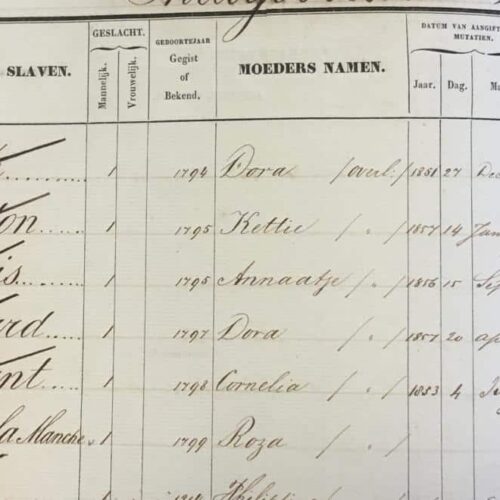 SLAVEN. GESLACHT. Mannelijk. Vrouwelijk. GEBOORTEJAAR Gegist of Bekend. MOEDERS NAMEN. DATUM VAN AANGIFT MUTATIEN. Jaar. Dag.
1 1794 Dora /overl:/ 1851 27 Dec
on 1 1795 Kettie / " / 1857 14 Jan
is 1 1795 Annaatje / " / 1856 15 Sep
ard 1 1797 Dora / " / 1857 20 ap
nt 1 1798 Cornelia / " / 1853 4
la Manche 1 1799 Roza